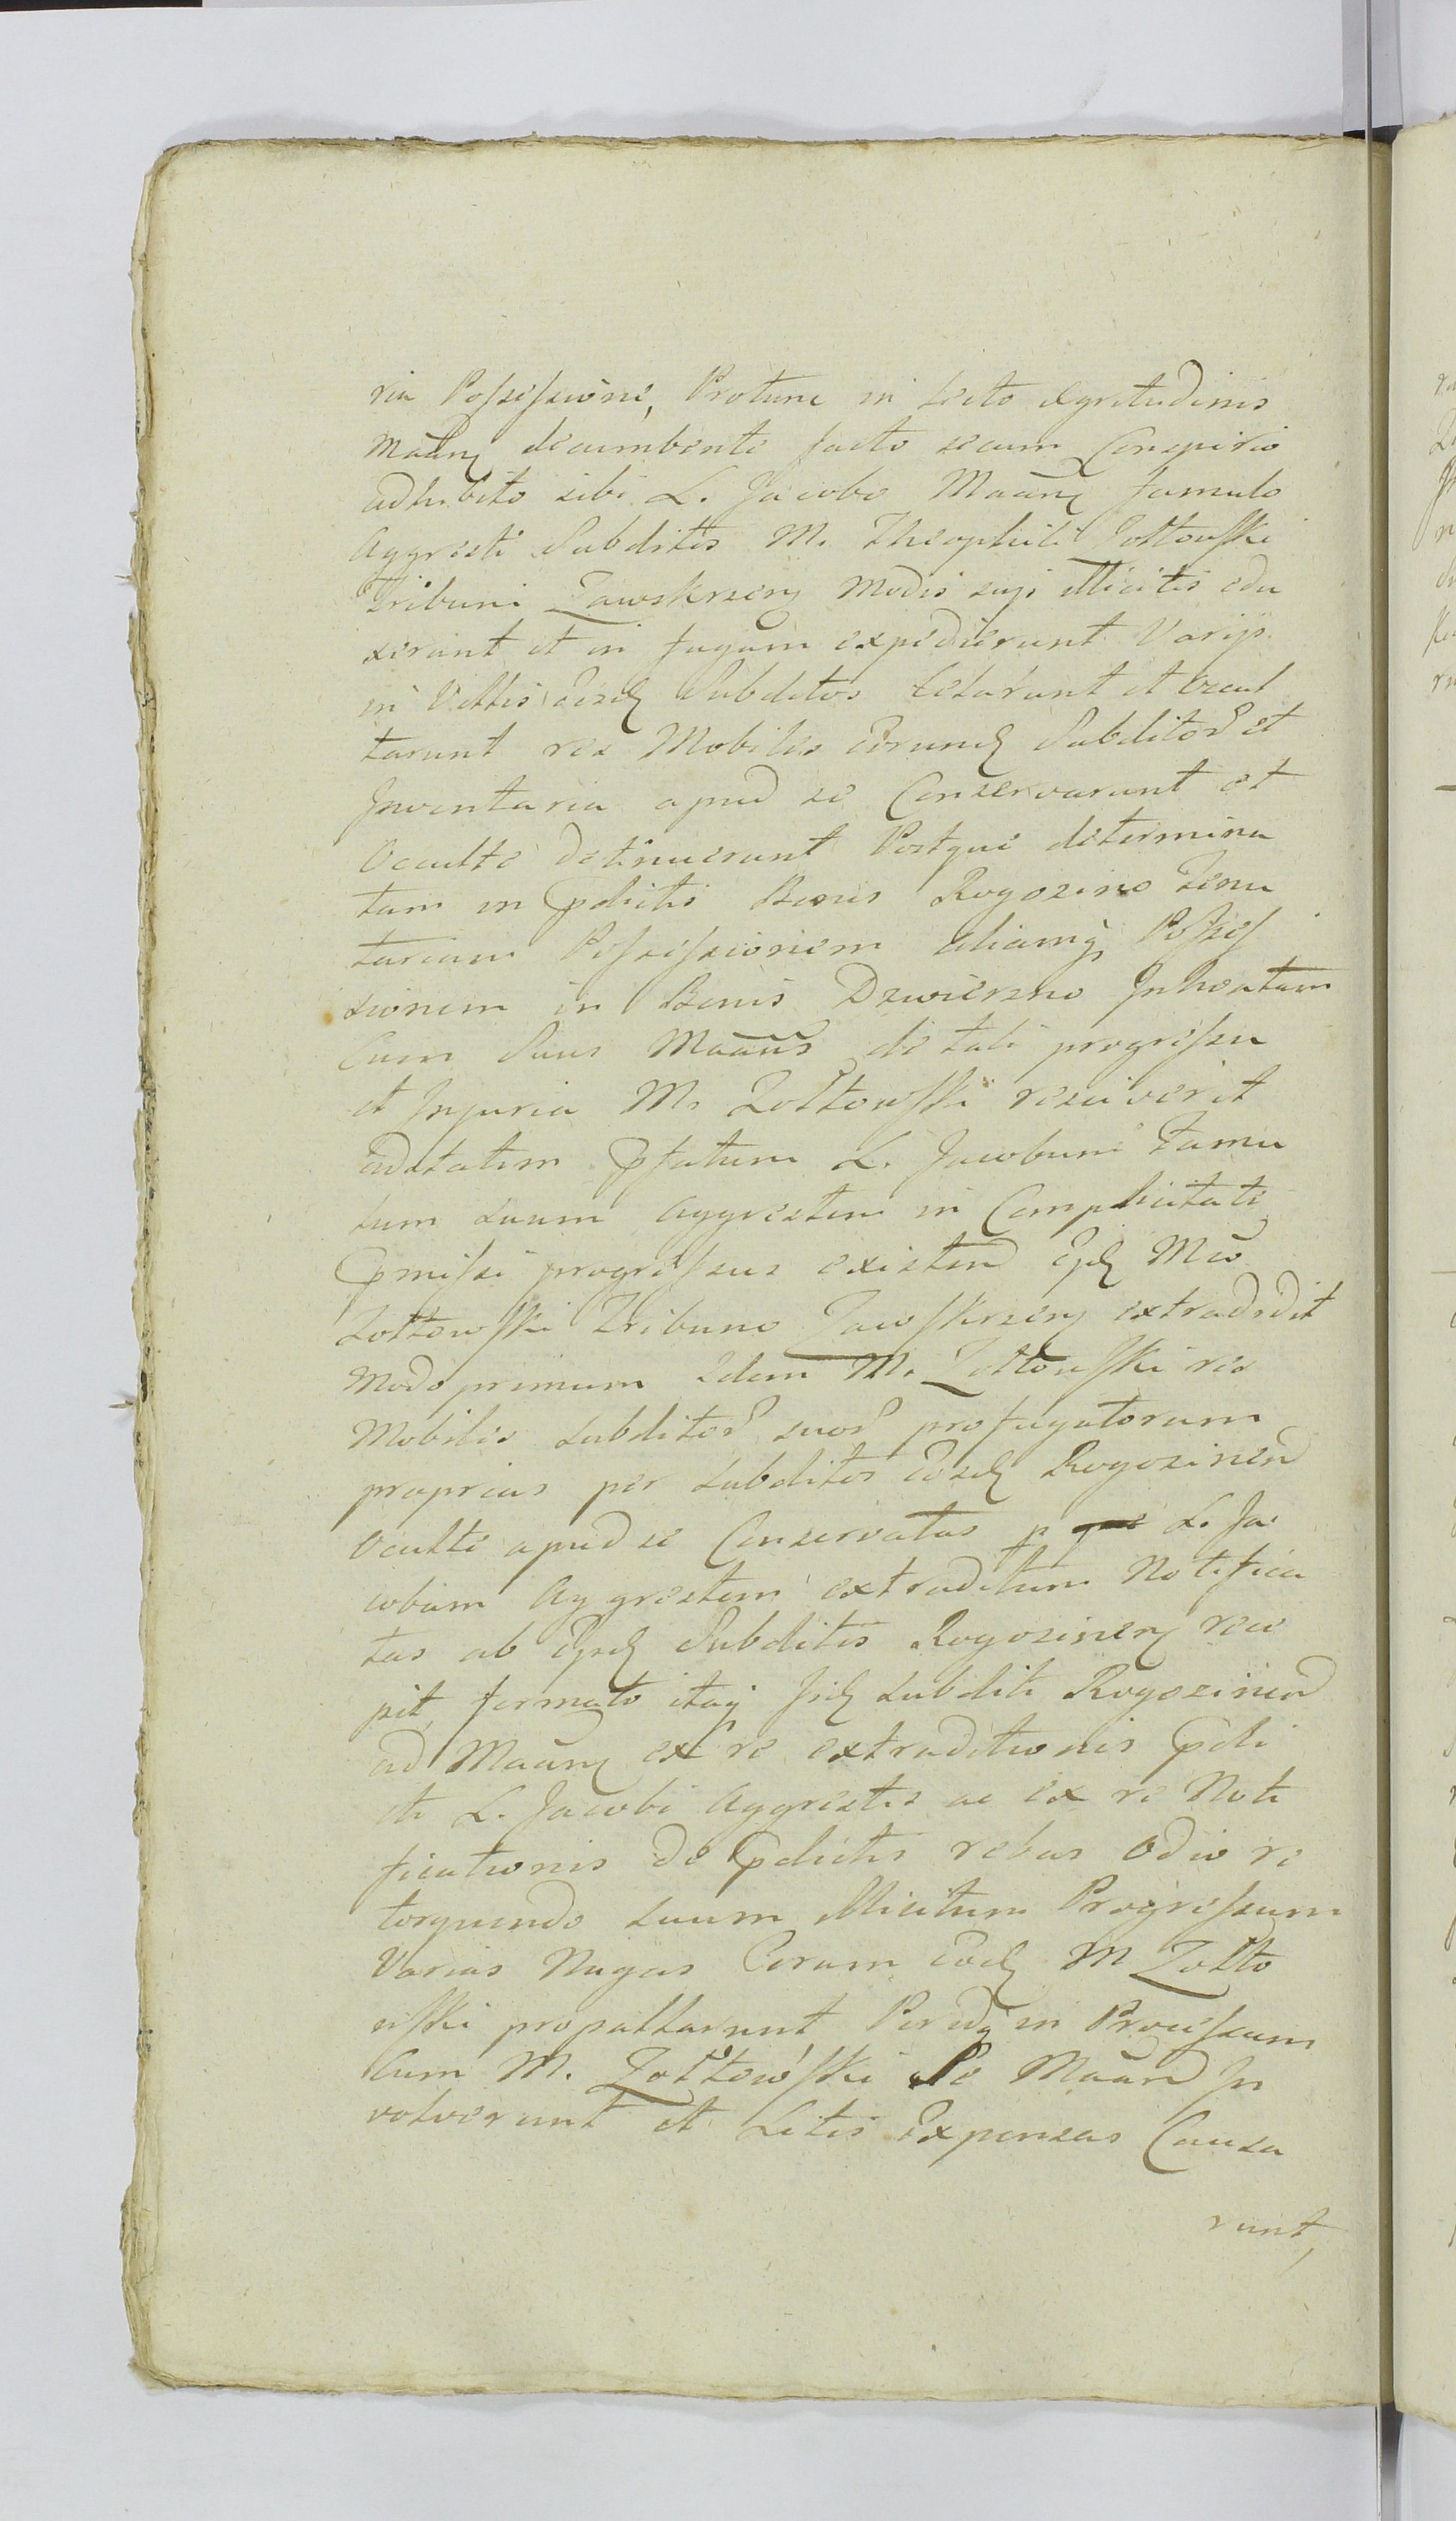 ria Possessione, Protunc in Lecto Egritudinis
Maãnẽ decumbente facto secum Conspirio
adhibito sibi L. Jacobo Maãnẽ famulo
Aggresti Subditos M. Theophili Zołtowski
Tribuni Zawskrzenẽ Modis suis illicitis edu
xerunt et in fugam expedierunt Varijs
in Villis eosdẽ Subditos Celarunt et Occul
tarunt res Mobiles eorundẽ Subditor̃ et
Inventaria apud se Conservarunt et
Occulte detinuerunt Postque determina
tam in p̃dictis Bonis Rogozino Tenu
tariam Possessionem aliamq̃ Posses
sionem in Bonis Dzwierzno Inhoatam
Cum Suus Maãns de tali progressu
et Injuria M. Zołtowski resciverit
adstatim p̃fatum L. Jacobum Famu
lum suum Aggrestem in Complicitate
p̃missi progressus existen̄ Eidẽ Mco
Zołtowski Tribuno Zawskrzenẽ extradidit
Modo primum Idem M. Zołtowski res
Mobiles Subditor̃ suor̃ profugatorum
proprias per Subditos Eosdẽ Rogozinen̄
Oculte apud se Conservatas p L. Ja
cobum Aggrestem extraditum Notifica
tas ab Eisdẽ Subditis Rogozinenẽ rece
pit formato itaq̃ Iidẽ Subditi Rogozinen̄
ad Maãnẽ ex re extraditionis p̃di
cti L. Jacobi Aggrestis ac ex re Noti
ficationis de p̃dictis rebus Odio re
torquendo suum illicitum Progressum
Varias Nugas Coram eodẽ M Zołto
wski propallarunt, Perindq̃ in Processum
Cum M. Zołtowski Se Maãn̄ In
volverunt et Litis Expensas Causa
runt,